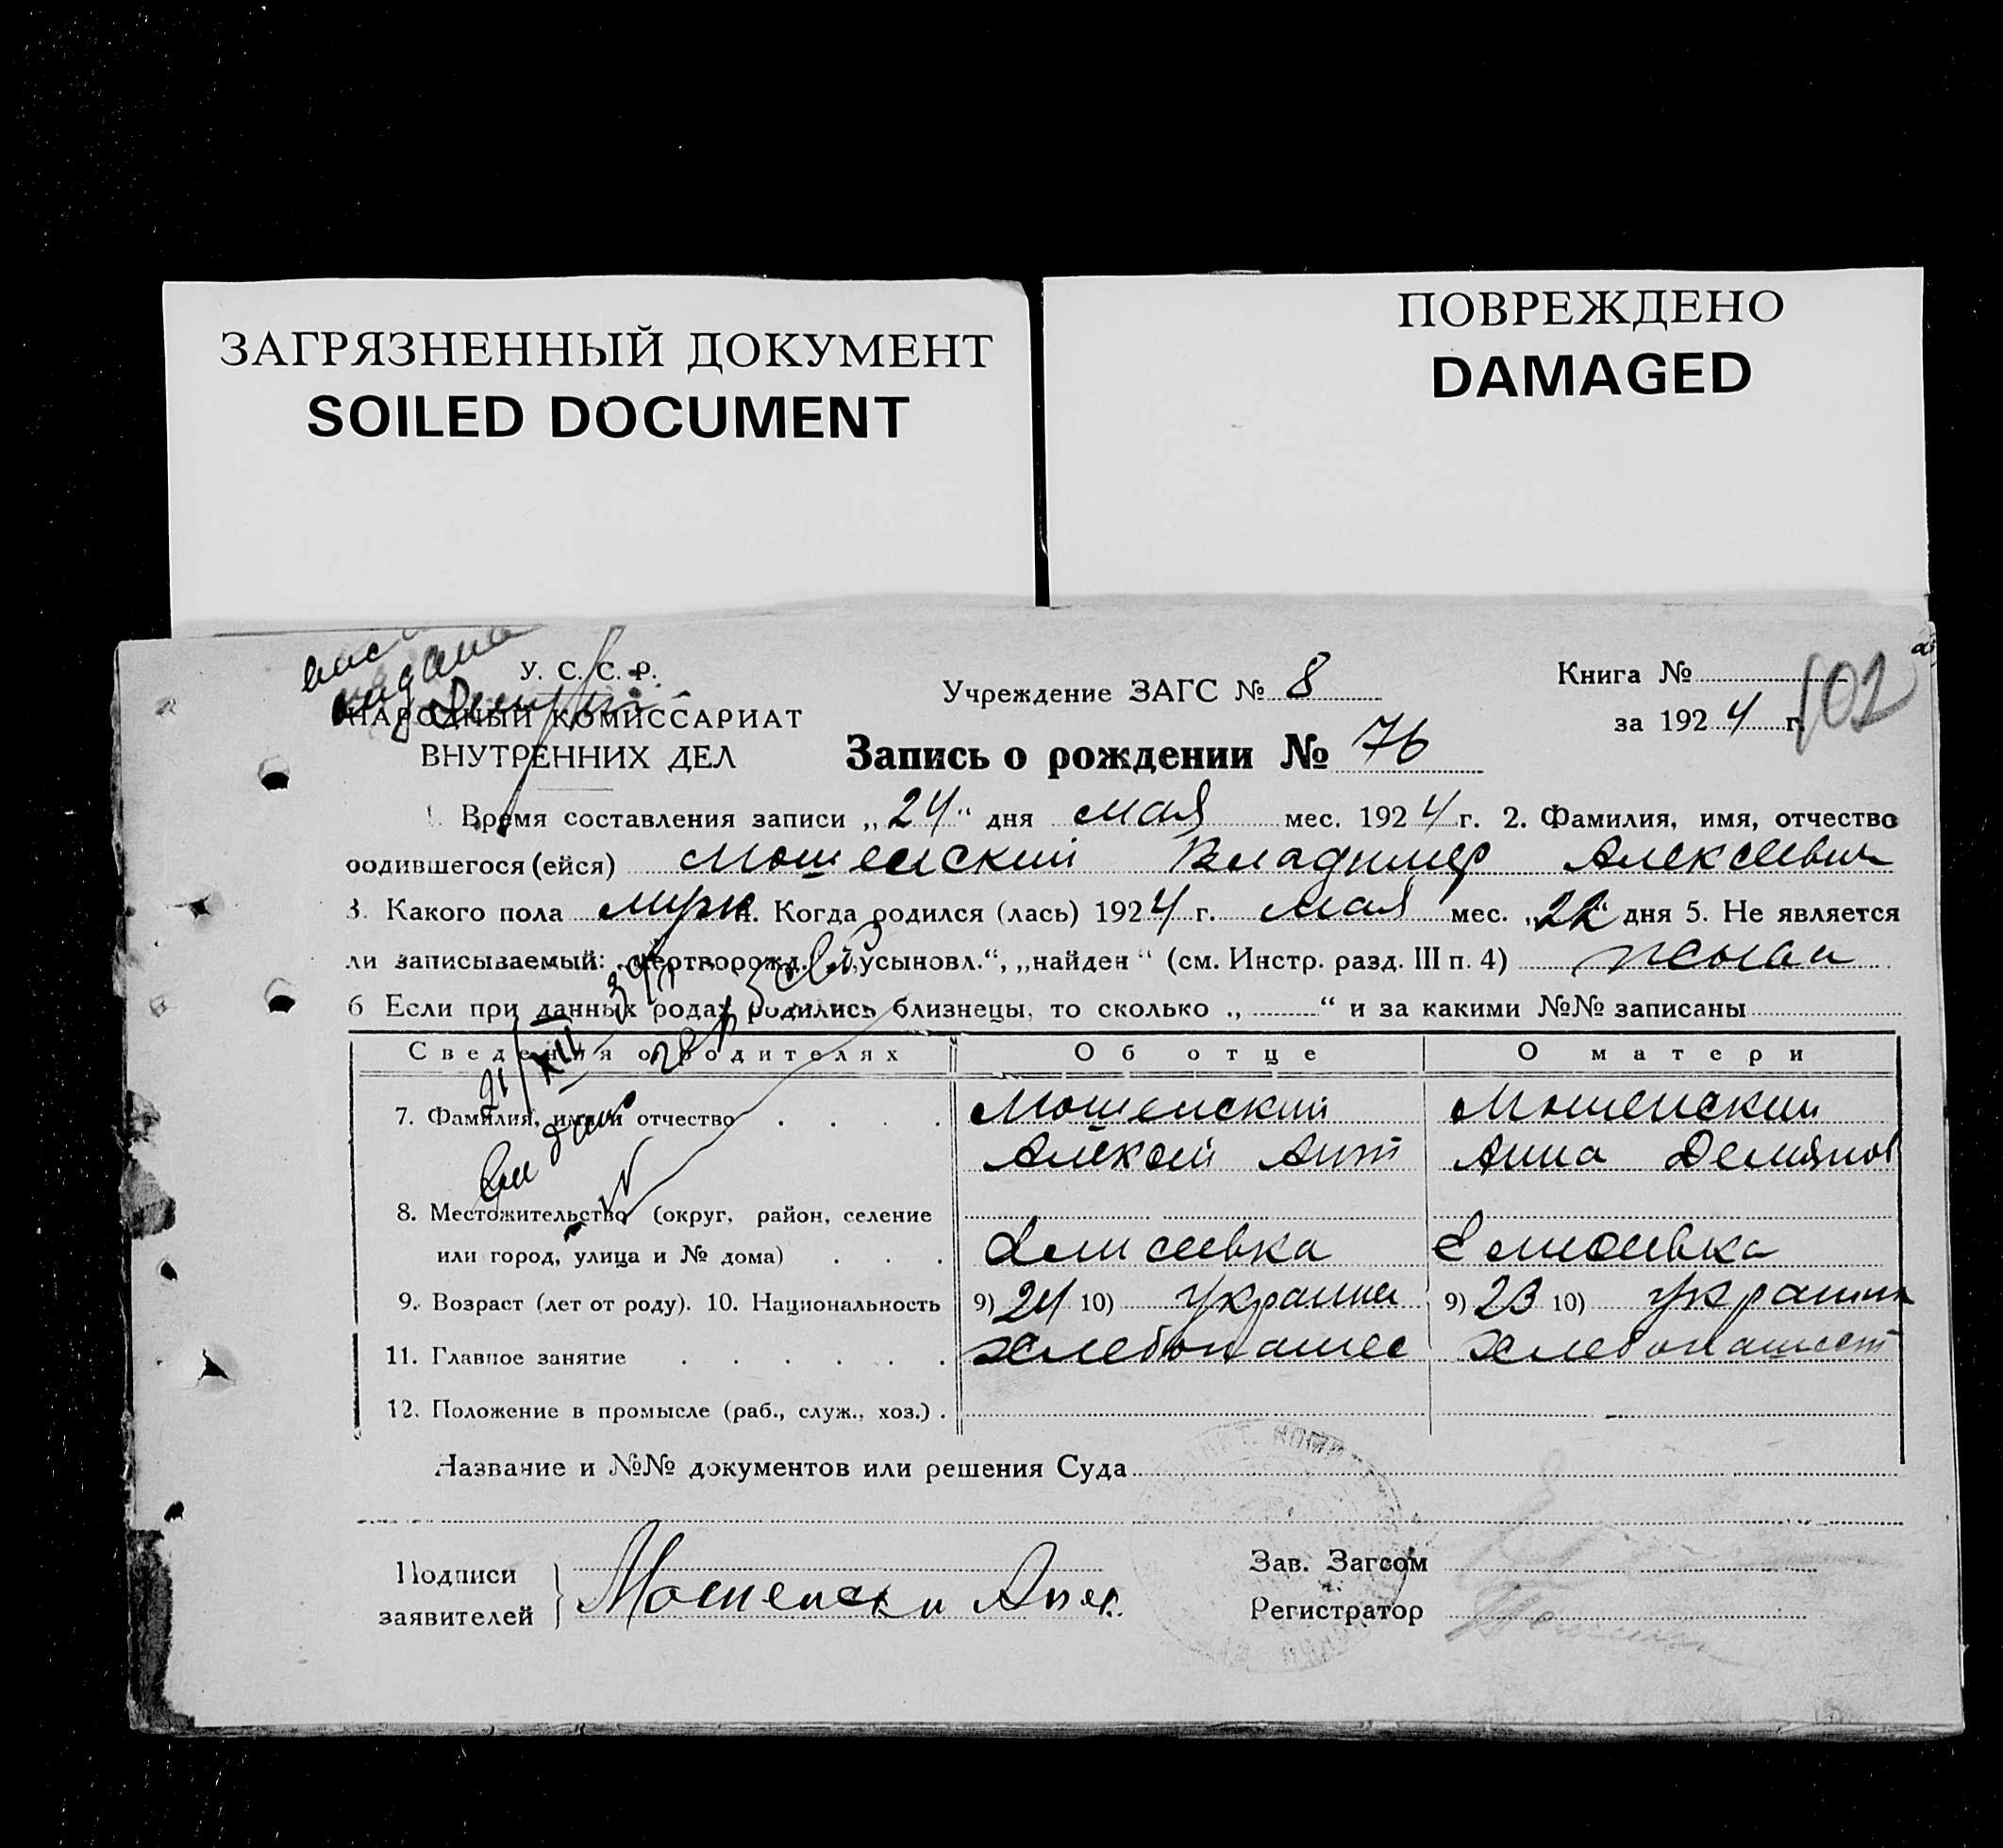 ЗАГРЯЗНЕННЫЙ ДОКУМЕНТ
SOILED DOCUMENT
ПОВРЕЖДЕНО
DAMAGED
У. С. С. Р.
НАРОДНЫЙ КОМИССАРИАТ
ВНУТРЕННИХ ДЕЛ
Учреждение ЗАГС № 8
Книга №
за 1924 г.
102
Запись о рождении № 76
1. Время составления записи „24“ дня мая мес. 1924 г. 2. Фамилия, имя, отчество
родившегося (ейся) Мошенский Владимир Алексеевич
3. Какого пола мужс 4. Когда родился (лась) 1924 г. мая мес. „22“ дня 5. Не является
ли записываемый: „мертворожд.“, „усыновл.“, „найден“ (см. Инстр. разд. III п. 4)
6 Если при данных родах родились близнецы, то сколько „ “ и за какими №№ записаны
Сведения о родителях Об отце О матери
7. Фамилия, имя и отчество Мошенский Мошенский
Алексей Ант Анна Демянов
8. Местожительство (округ, район, селение
или город, улица и № дома) Елисеевка Елисеевка
9. Возраст (лет от роду). 10. Национальность 9) 24 10) Украинец 9) 23 10) Украинк
11. Главное занятие хлебопашес хлебопашест
12. Положение в промысле (раб., служ., хоз.)
Название и №№ документов или решения Суда
Подписи
заявителей
Мошенски Алек.
Зав. Загсом
Регистратор